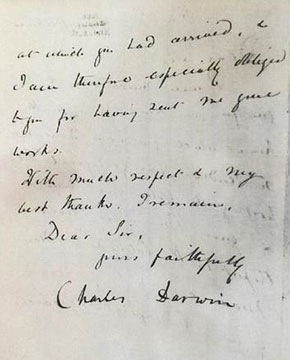 at which you had arrived, &
I am therefore especially obliged
to you for having sent me your
works.
With much respect & my
best thanks. I remain,
Dear Sir,
yours faithfully
Charles Darwin